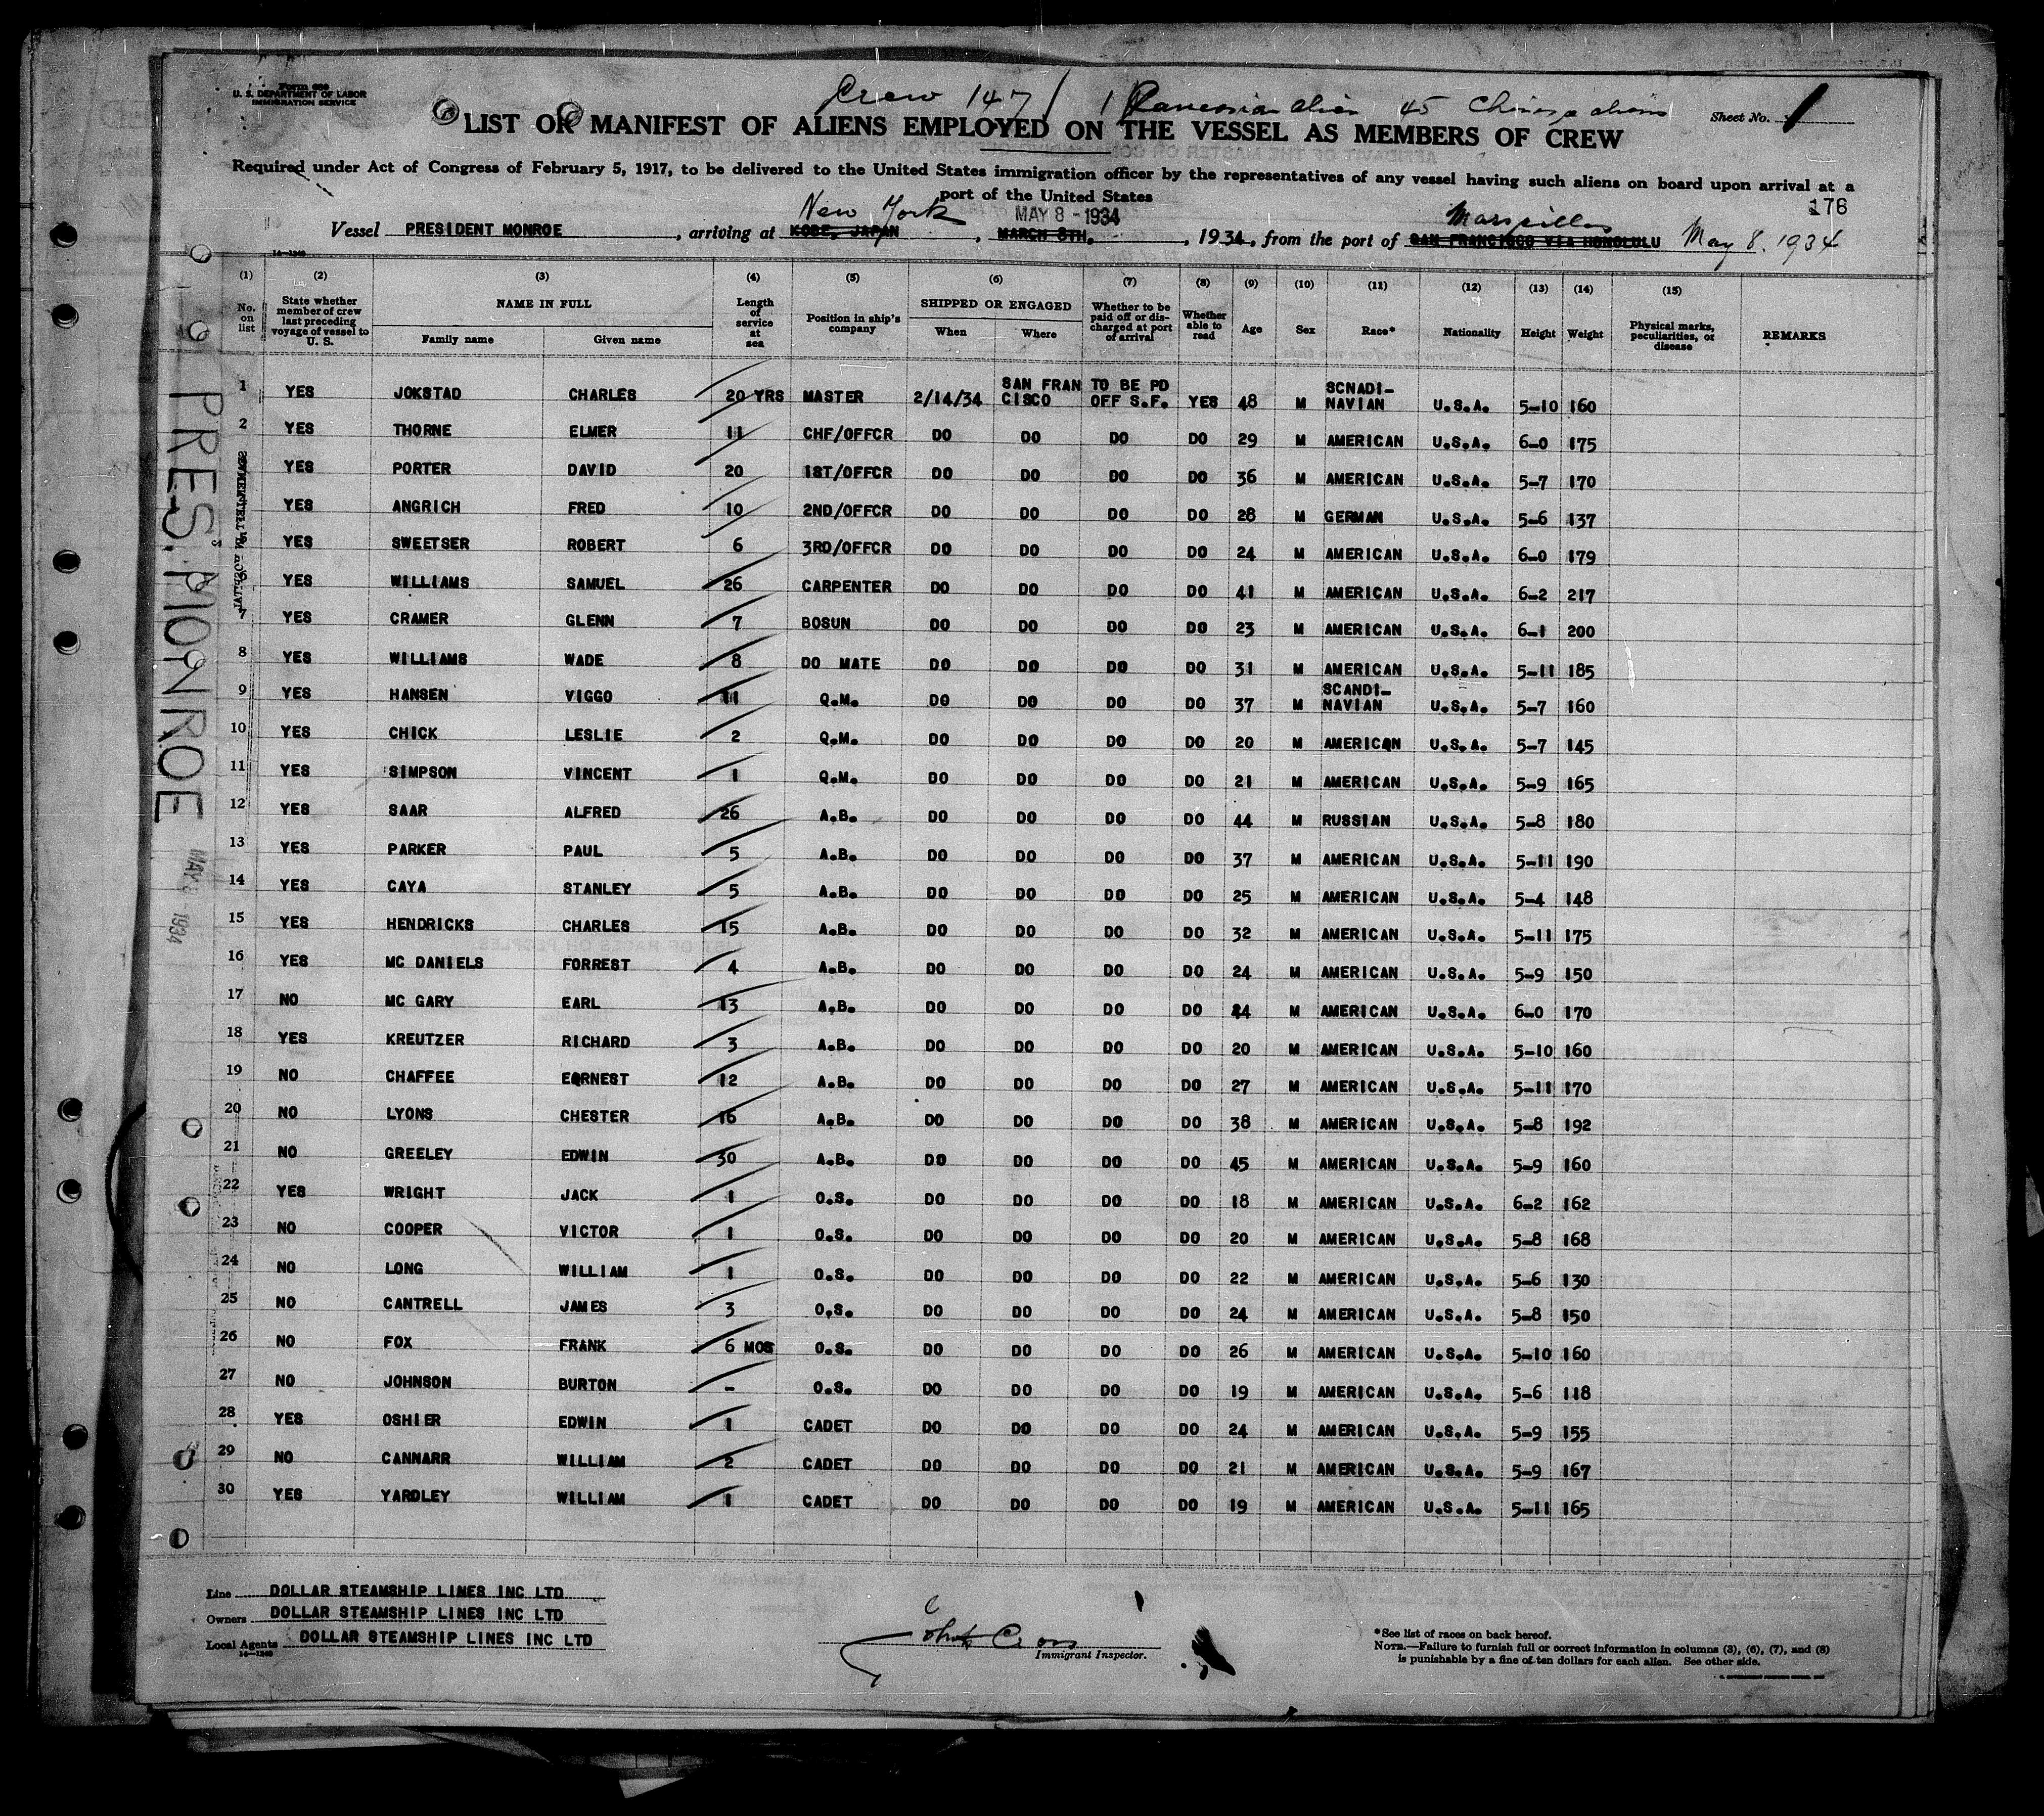 Form 689
U. S. DEPARTMENT OF LABOR
IMMIGRATION SERVICE
Crew 147 1 alien 45 Chinese aliens
Sheet No. 1
LIST OR MANIFEST OF ALIENS EMPLOYED ON THE VESSEL AS MEMBERS OF CREW
Required under Act of Congress of February 5, 1917, to be delivered to the United States immigration officer by the representatives of any vessel having such aliens on board upon arrival at a
port of the United States
176
New York MAY 8 - 1934 Marseilles
Vessel PRESIDENT MONROE, arriving at KOBE, JAPAN, MARCH 8TH, 1934, from the port of SAN FRANCISCO VIA HONOLULU May 8. 1934
14—1240
(1) (2) (3) (4) (5) (6) (7) (8) (9) (10) (11) (12) (13) (14) (15)
No. on list State whether member of crew last preceding voyage of vessel to U. S. NAME IN FULL Family name Given name Length of service at sea Position in ship's company SHIPPED OR ENGAGED When Where Whether to be paid off or discharged at port of arrival Whether able to read Age Sex Race* Nationality Height Weight Physical marks, peculiarities, or disease REMARKS
1 YES JOKSTAD CHARLES 20 YRS MASTER 2/14/34 SAN FRAN CISCO TO BE PD OFF S.F. YES 48 M SCNADI- NAVIAN U.S.A. 5-10 160
2 YES THORNE ELMER 11 CHF/OFFCR DO DO DO DO 29 M AMERICAN U.S.A. 6-0 175
YES PORTER DAVID 20 1ST/OFFCR DO DO DO DO 36 M AMERICAN U.S.A. 5-7 170
YES ANGRICH FRED 10 2ND/OFFCR DO DO DO DO 28 M GERMAN U.S.A. 5-6 137
YES SWEETSER ROBERT 6 3RD/OFFCR DO DO DO DO 24 M AMERICAN U.S.A. 6-0 179
6 YES WILLIAMS SAMUEL 26 CARPENTER DO DO DO DO 41 M AMERICAN U.S.A. 6-2 217
7 YES CRAMER GLENN 7 BOSUN DO DO DO DO 23 M AMERICAN U.S.A. 6-1 200
8 YES WILLIAMS WADE 8 DO MATE DO DO DO DO 31 M AMERICAN U.S.A. 5-11 185
9 YES HANSEN VIGGO 11 Q.M. DO DO DO DO 37 M SCANDI- NAVIAN U.S.A. 5-7 160
10 YES CHICK LESLIE 2 Q.M. DO DO DO DO 20 M AMERICAN U.S.A. 5-7 145
11 YES SIMPSON VINCENT 1 Q.M. DO DO DO DO 21 M AMERICAN U.S.A. 5-9 165
12 YES SAAR ALFRED 26 A.B. DO DO DO DO 44 M RUSSIAN U.S.A. 5-8 180
13 YES PARKER PAUL 5 A.B. DO DO DO DO 37 M AMERICAN U.S.A. 5-11 190
14 YES CAYA STANLEY 5 A.B. DO DO DO DO 25 M AMERICAN U.S.A. 5-4 148
15 YES HENDRICKS CHARLES 15 A.B. DO DO DO DO 32 M AMERICAN U.S.A. 5-11 175
16 YES MC DANIELS FORREST 4 A.B. DO DO DO DO 24 M AMERICAN U.S.A. 5-9 150
17 NO MC GARY EARL 13 A.B. DO DO DO DO 44 M AMERICAN U.S.A. 6-0 170
18 YES KREUTZER RICHARD 3 A.B. DO DO DO DO 20 M AMERICAN U.S.A. 5-10 160
19 NO CHAFFEE EARNEST 12 A.B. DO DO DO DO 27 M AMERICAN U.S.A. 5-11 170
20 NO LYONS CHESTER 16 A.B. DO DO DO DO 38 M AMERICAN U.S.A. 5-8 192
21 NO GREELEY EDWIN 30 A.B. DO DO DO DO 45 M AMERICAN U.S.A. 5-9 160
22 YES WRIGHT JACK 1 O.S. DO DO DO DO 18 M AMERICAN U.S.A. 6-2 162
23 NO COOPER VICTOR 1 O.S. DO DO DO DO 20 M AMERICAN U.S.A. 5-8 168
24 NO LONG WILLIAM 1 O.S. DO DO DO DO 22 M AMERICAN U.S.A. 5-6 130
25 NO CANTRELL JAMES 3 O.S. DO DO DO DO 24 M AMERICAN U.S.A. 5-8 150
26 NO FOX FRANK 6 MOS O.S. DO DO DO DO 26 M AMERICAN U.S.A. 5-10 160
27 NO JOHNSON BURTON - O.S. DO DO DO DO 19 M AMERICAN U.S.A. 5-6 118
28 YES OSHIER EDWIN 1 CADET DO DO DO DO 24 M AMERICAN U.S.A. 5-9 155
29 NO CANNARR WILLIAM 2 CADET DO DO DO DO 21 M AMERICAN U.S.A. 5-9 167
30 YES YARDLEY WILLIAM 1 CADET DO DO DO DO 19 M AMERICAN U.S.A. 5-11 165
PRES. MONROE
MAY 8 - 1934
Line DOLLAR STEAMSHIP LINES INC LTD
Owners DOLLAR STEAMSHIP LINES INC LTD
Local Agents DOLLAR STEAMSHIP LINES INC LTD
14—1240
Immigrant Inspector.
*See list of races on back hereof.
NOTE.—Failure to furnish full or correct information in columns (3), (6), (7), and (8)
is punishable by a fine of ten dollars for each alien. See other side.